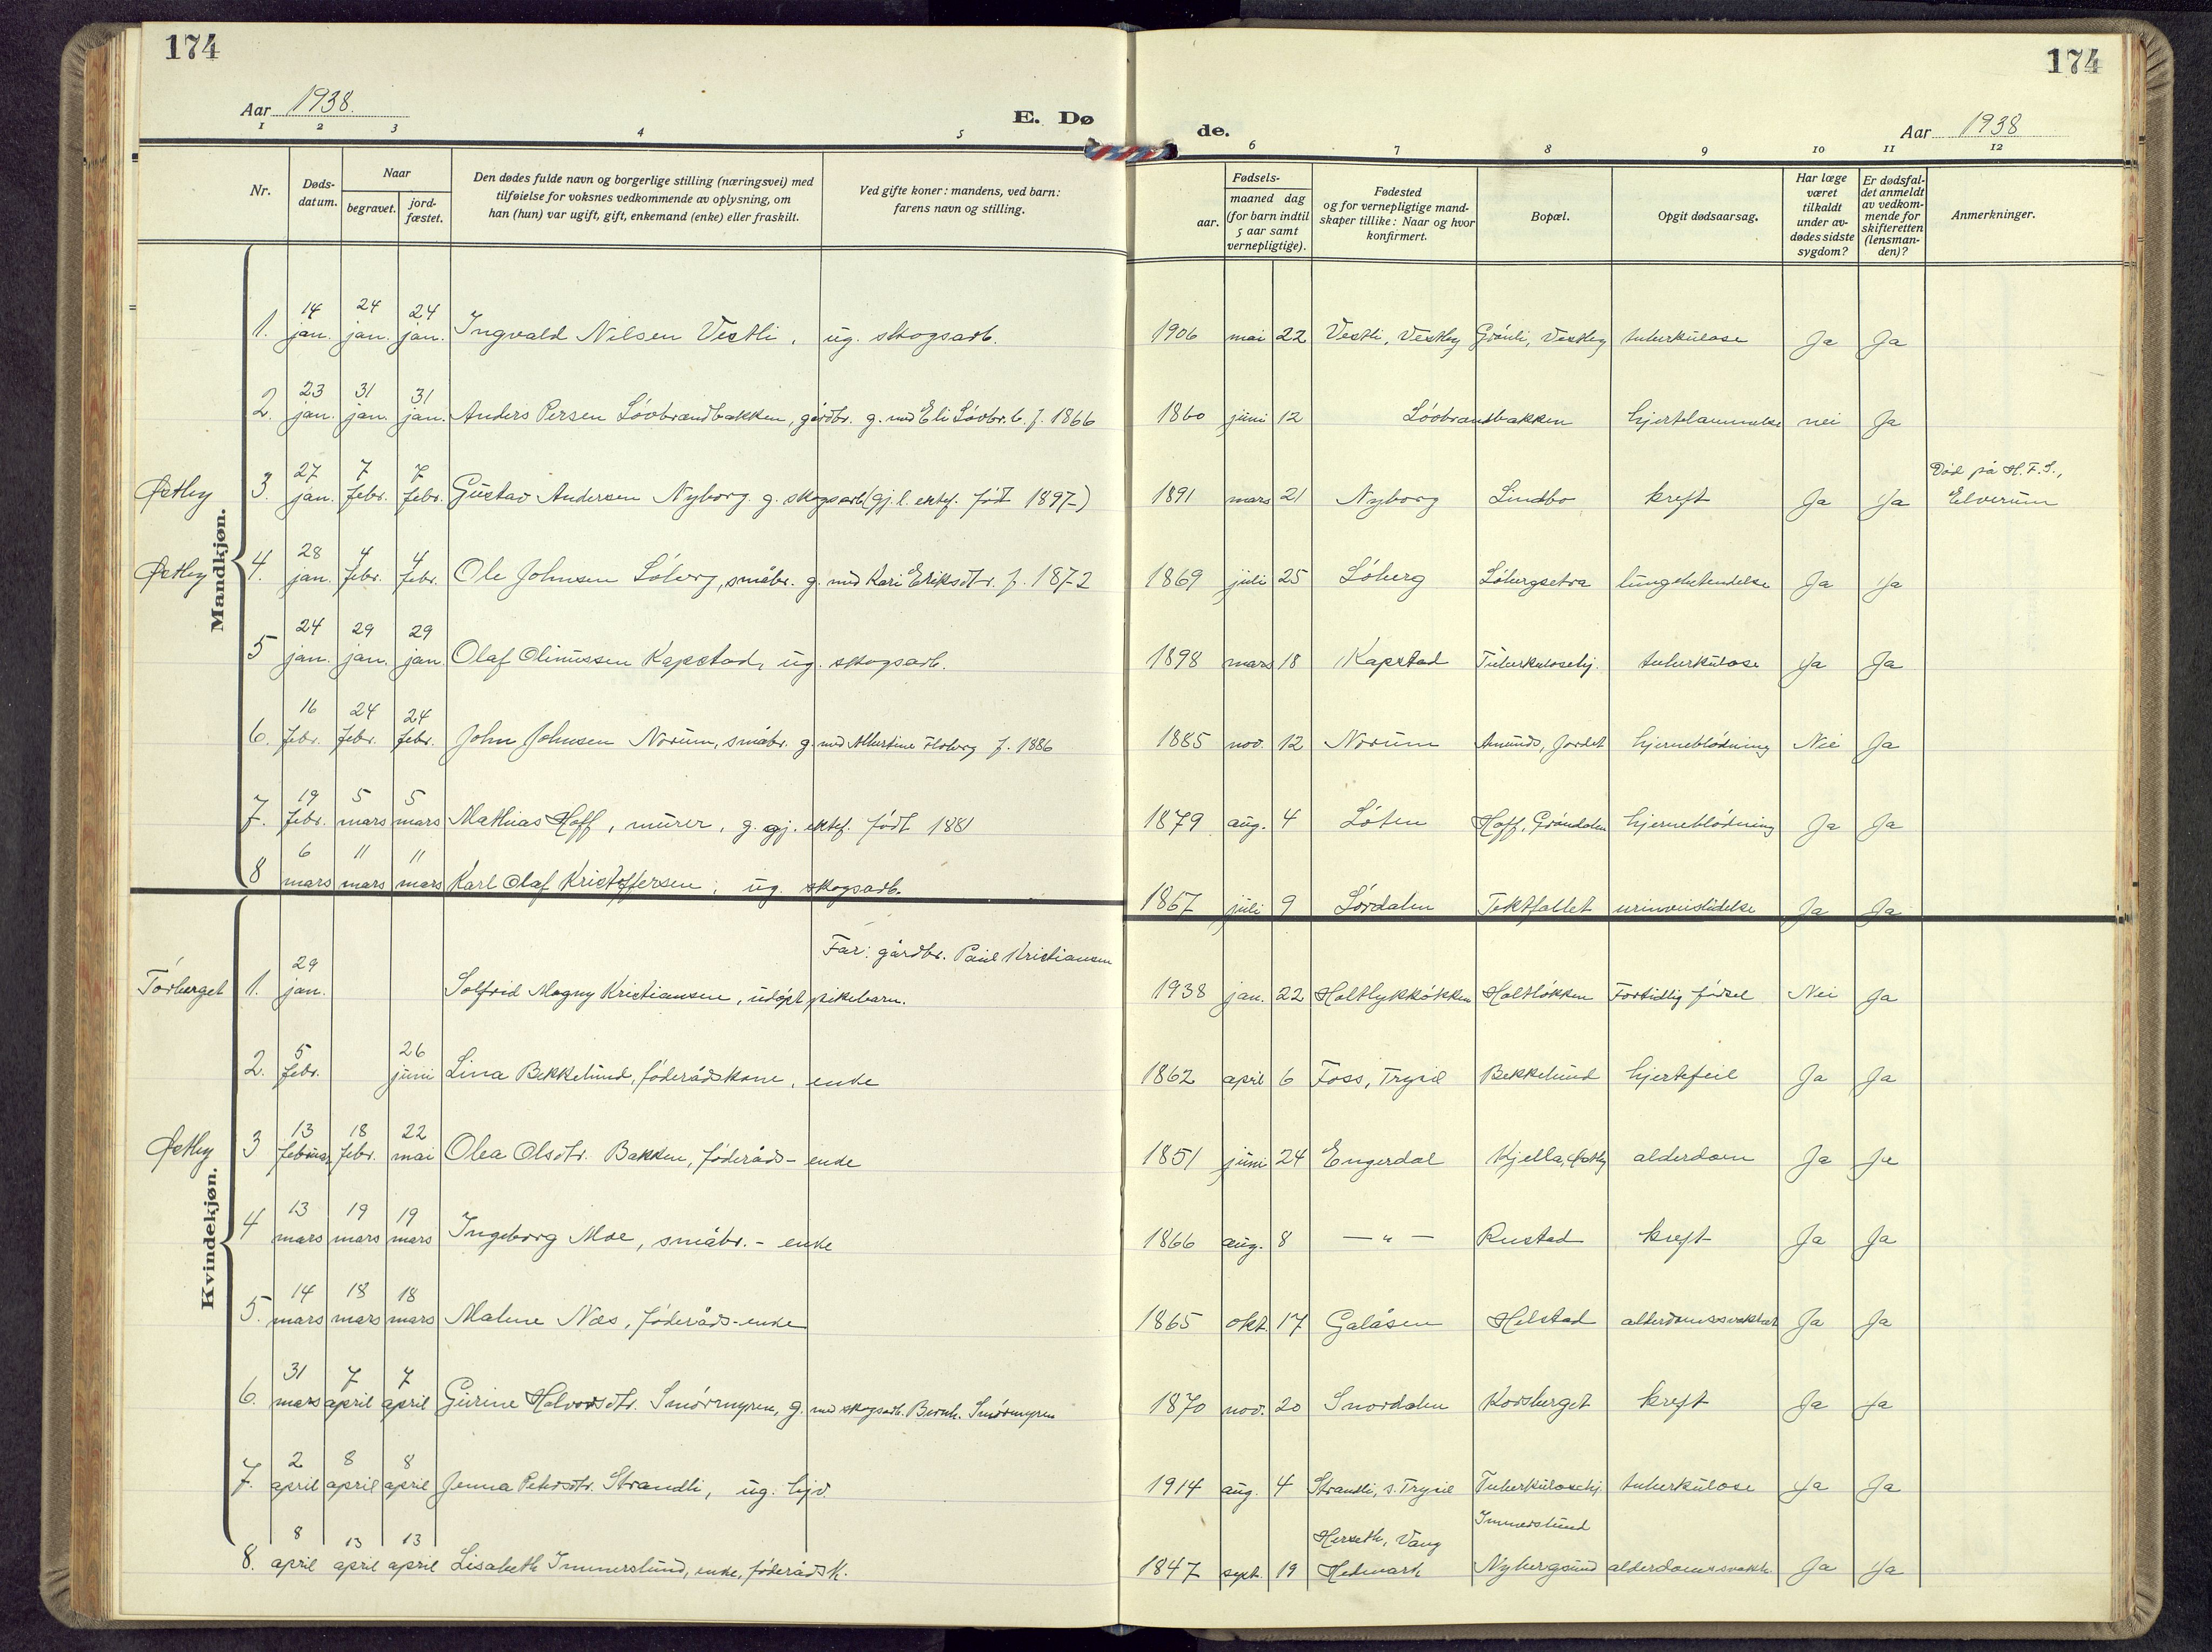 174
174
Aar 1938.
E. Dø
de.
Aar 1938
1 2 3 4 5 6 7 8 9 10 11 12
Nr.
Døds-
datum.
Naar
begravet.
jord-
fæstet.
Den dødes fulde navn og borgerlige stilling (næringsvei) med
tilføielse for voksnes vedkommende av oplysning, om
han (hun) var ugift, gift, enkemand (enke) eller fraskilt.
Ved gifte koner: mandens, ved barn:
farens navn og stilling.
Fødsels-
aar.
maaned dag
(for barn indtil
5 aar samt
vernepligtige).
Fødested
og for vernepligtige mand-
skaper tillike: Naar og hvor
konfirmert.
Bopæl.
Opgit dødsaarsag.
Har læge
været
tilkaldt
under av-
dødes sidste
sygdom?
Er dødsfal-
det anmeldt
av vedkom-
mende for
skifteretten
(lensman-
den)?
Anmerkninger.
Mandkjøn.
1. 14 jan. 24 jan. 24 jan. Ingvald Nilsen Vestli, ug. skogsarb. 1906 mai 22 Vestli, Vestby Grönli, Vestby tuberkulose Ja Ja
2. 23 jan. 31 jan. 31 jan. Anders Persen Lövbrandbakken, gårdbr. g. med Eli Lövbr.b. f. 1866 1860 juni 12 Lövbrandbakken hjertelammelse nei Ja
Østby 3. 27 jan. 7 febr. 7 febr. Gustav Andersen Nyborg g. skogsarb. (gj.l. ektef. født 1897) 1891 mars 21 Nyborg Lindbo kreft Ja Ja Död på H.F.S., Elverum
Østby 4. 28 jan. 4 febr. 4 febr. Ole Johnsen Löberg, småbr. g. med Kari Eriksdtr. f. 1872 1869 juli 25 Löberg Löbergsetra lungebetendelse Ja Ja
5 24 jan. 29 jan. 29 jan Olaf Olimussen Kapstad, ug. skogsarb. 1898 mars 18 Kapstad Tuberkulosehj. tuberkulose Ja Ja
6. 16 febr. 24 febr. 24 febr. John Johnsen Norum, småbr. g. med Albertine Floberg f. 1886 1885 nov. 12 Norum Amunds, Jordet hjerneblödning Nei Ja
7. 19 febr. 5 mars 5 mars Mathias Hoff, murer, g. gj. ektef. född 1881 1879 aug. 4 Löten Hoff, Gröndalen hjerneblödning Ja Ja
8 6 mars 11 mars 11 mars Karl Olaf Kristoffersen, ug. skogsarb. 1867 juli 9 Lördalen Tektfallet urinveislidelse Ja Ja
Kvindekjøn.
Far: gårdbr. Paul Kristiansen
Törberget 1. 29 jan. Solfrid Magny Kristiansen, udöpt pikebarn. 1938 jan. 22 Holtlykkökken Holtlökken Fortidlig födsel Nei Ja
2. 5 febr. 26 juni Lina Bekkelund, föderådskone, enke 1862 april 6 Foss, Trysil Bekkelund hjertefeil Ja Ja
Østby 3 13 februar 18 febr. 22 mai Olea Olsdtr. Bakken, föderåds- enke 1851 juni 24 Engerdal Kjella, Østby alderdom Ja Ja
4 13 mars 19 mars 19 mars Ingeborg Moe, småbr. - enke 1866 aug. 8 — " — Rustad kreft Ja Ja
5. 14 mars 18 mars 18 mars Malene Næs, föderåds-enke 1865 okt. 17 Galåsen Helstad alderdomssvakhet Ja Ja
6. 31 mars 7 april 7 april Gurine Halvorsdtr. Smörmyren, g. med skogsarb. Bernh. Smörmyren 1870 nov. 20 Snordalen Korsberget kreft Ja Ja
7. 2 april 8 april 8 april Jenna Petersdtr. Strandli, ug. hjv. 1914 aug. 4 Strandli, s. Trysil Tuberkulosehj. tuberkulose Ja Ja
8. 8 april 13 april 13 april Lisabeth Immerslund, enke, föderådsk. 1847 sept. 19 Herseth, Vang Hedmark Immerslund Nybergsund alderdomssvakh. Ja Ja